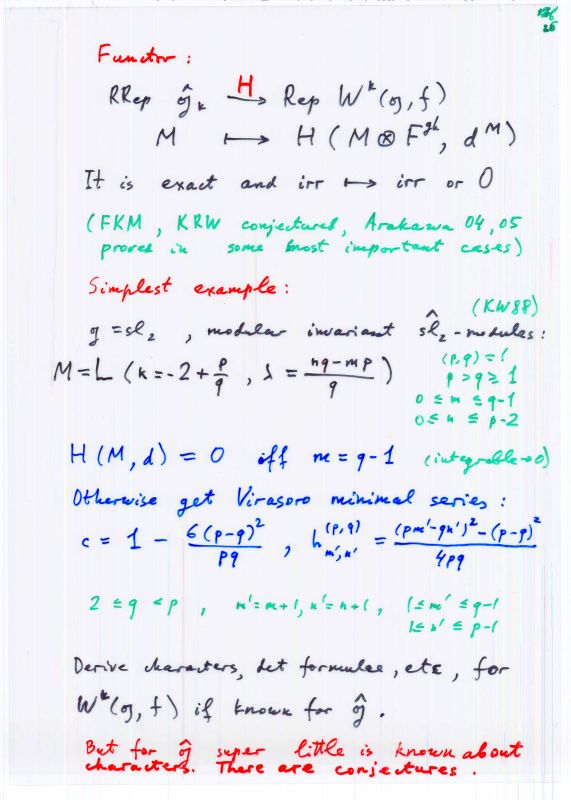 26
Functor :
RRep ĝ_k —H→ Rep W^k(g, f)
M ⟼ H (M ⊗ F^gh, d^M)
It is exact and irr ↦ irr or 0
(FKM, KRW conjectured, Arakawa 04, 05
proved in some most important cases)
Simplest example :
(KW88)
g = sl_2 , modular invariant ŝl_2-modules :
(p, q) = 1
M = L (k = -2 + p/q , λ = (nq-mp)/q)
p > q ≥ 1
0 ≤ m ≤ q-1
0 ≤ n ≤ p-2
H (M, d) = 0 iff m = q-1 (integrable → 0)
Otherwise get Virasoro minimal series :
c = 1 - 6(p-q)^2/pq , h^(p,q)_m',n' = ((pm'-qn')^2 - (p-q)^2)/4pq
2 ≤ q < p , m' = m+1, n' = n+1 , 1 ≤ m' ≤ q-1
1 ≤ n' ≤ p-1
Derive characters, det formulae, etc, for
W^k(g, f) if known for ĝ .
But for ĝ super little is known about
characters. There are conjectures .